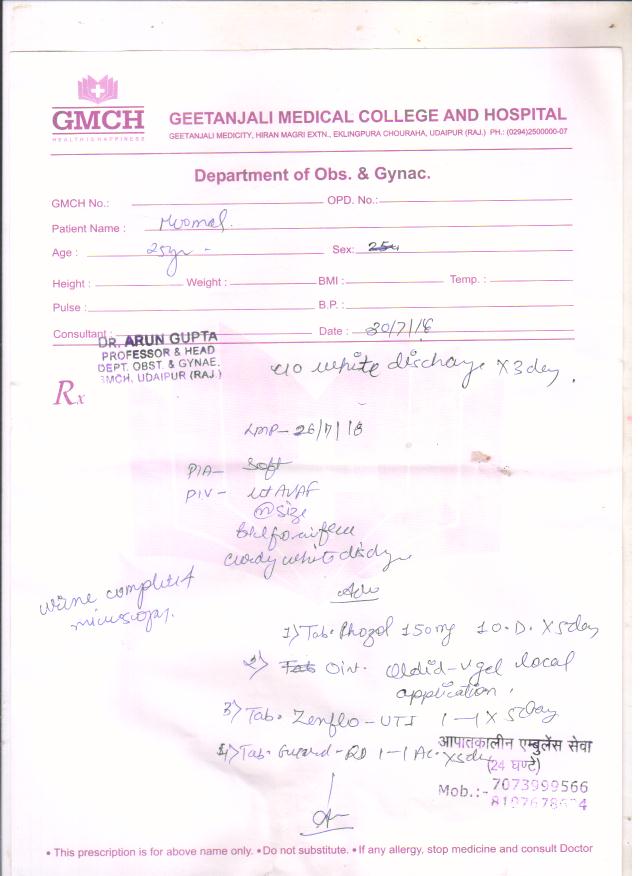 GMCH
HEALTH IS HAPPINESS
GEETANJALI MEDICAL COLLEGE AND HOSPITAL
GEETANJALI MEDICITY, HIRAN MAGRI EXTN., EKLINGPURA CHOURAHA, UDAIPUR (RAJ.) PH.: (0294)2500000-07
Department of Obs. & Gynac.
GMCH No.: OPD. No.:
Patient Name :
Age : 25yr - Sex:
Height : Weight : BMI : Temp. :
Pulse : B.P. :
Consultant : Date :
DR. ARUN GUPTA
PROFESSOR & HEAD
DEPT. OBST. & GYNAE.
GMCH, UDAIPUR (RAJ.)
c/o white discharge x 3 day.
Rx
LMP- 26/7/18
P/A- Soft
P/V- AVAF
(N) size
curdy white
urine complete
microscopy.
1) Tab. 150mg O.D. x 5day
2) Oint. local
application.
3) Tab. Zenflo-UTI 1-1 x 5day
4) Tab. 1-1 AC. x 5day
आपातकालीन एम्बुलेंस सेवा
(24 घण्टे)
Mob.:- 7073999566
• This prescription is for above name only. • Do not substitute. • If any allergy, stop medicine and consult Doctor